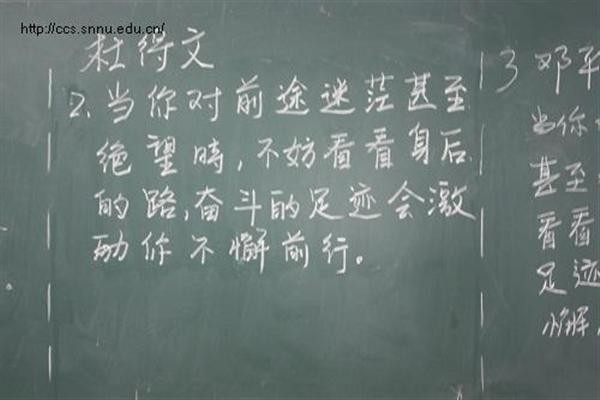 http://ccs.snnu.edu.cn/
杜得文
2.当你对前途迷茫甚至
绝望時,不妨看看身后
的路,奋斗的足迹会激
励你不懈前行。
3 邓平
当你
甚至
看看
足迹
懈